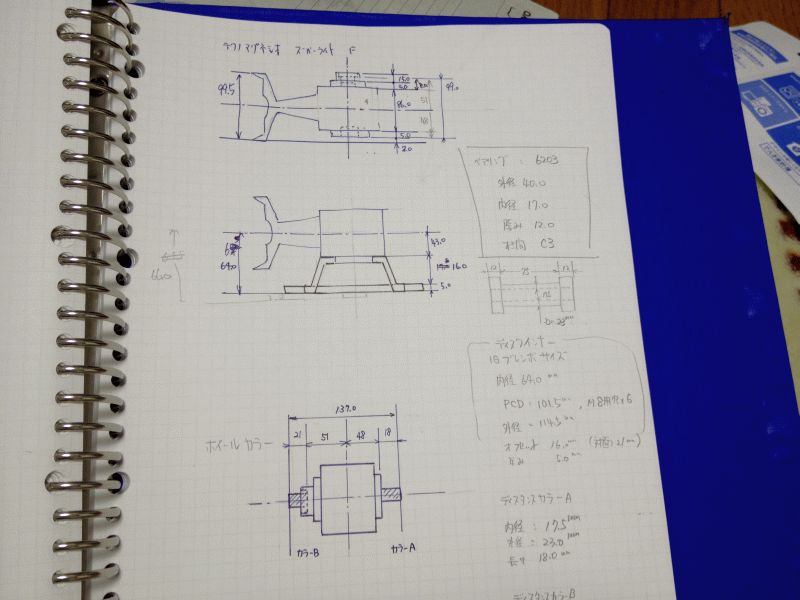 テクノマグネシオ スーパーライト F
99.5
15.0
5.0
51
86.0
48
5.0
2.0
99.0
ベアリング : 6203
外径 40.0
内径 17.0
厚み 12.0
C3
43.0
16.0
5.0
64.0
66.0
12
75
12
ディスクインナー
旧ブレンボサイズ
内径 64.0 mm
PCD = 101.5 mm , M8用穴×6
外径 = 114.5 mm
オフセット 16.0 mm (対面21mm)
厚み 5.0 mm
ホイールカラー
137.0
21
51
48
18
カラーB
カラーA
ディスタンスカラーA
内径 : 17.5 mm
外径 = 23.0 mm
長サ 18.0 mm
ディスタンスカラーB